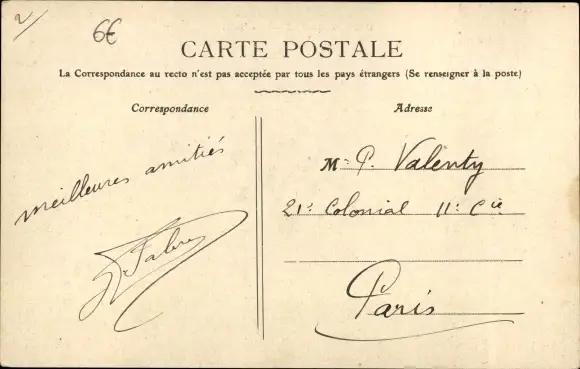 2/
6€
CARTE POSTALE
La Correspondance au recto n'est pas acceptée par tous les pays étrangers (Se renseigner à la poste)
Correspondance
meilleures amitiés
Fabre
Adresse
Mr P. Valenty
21e Colonial 11e Cie
Paris